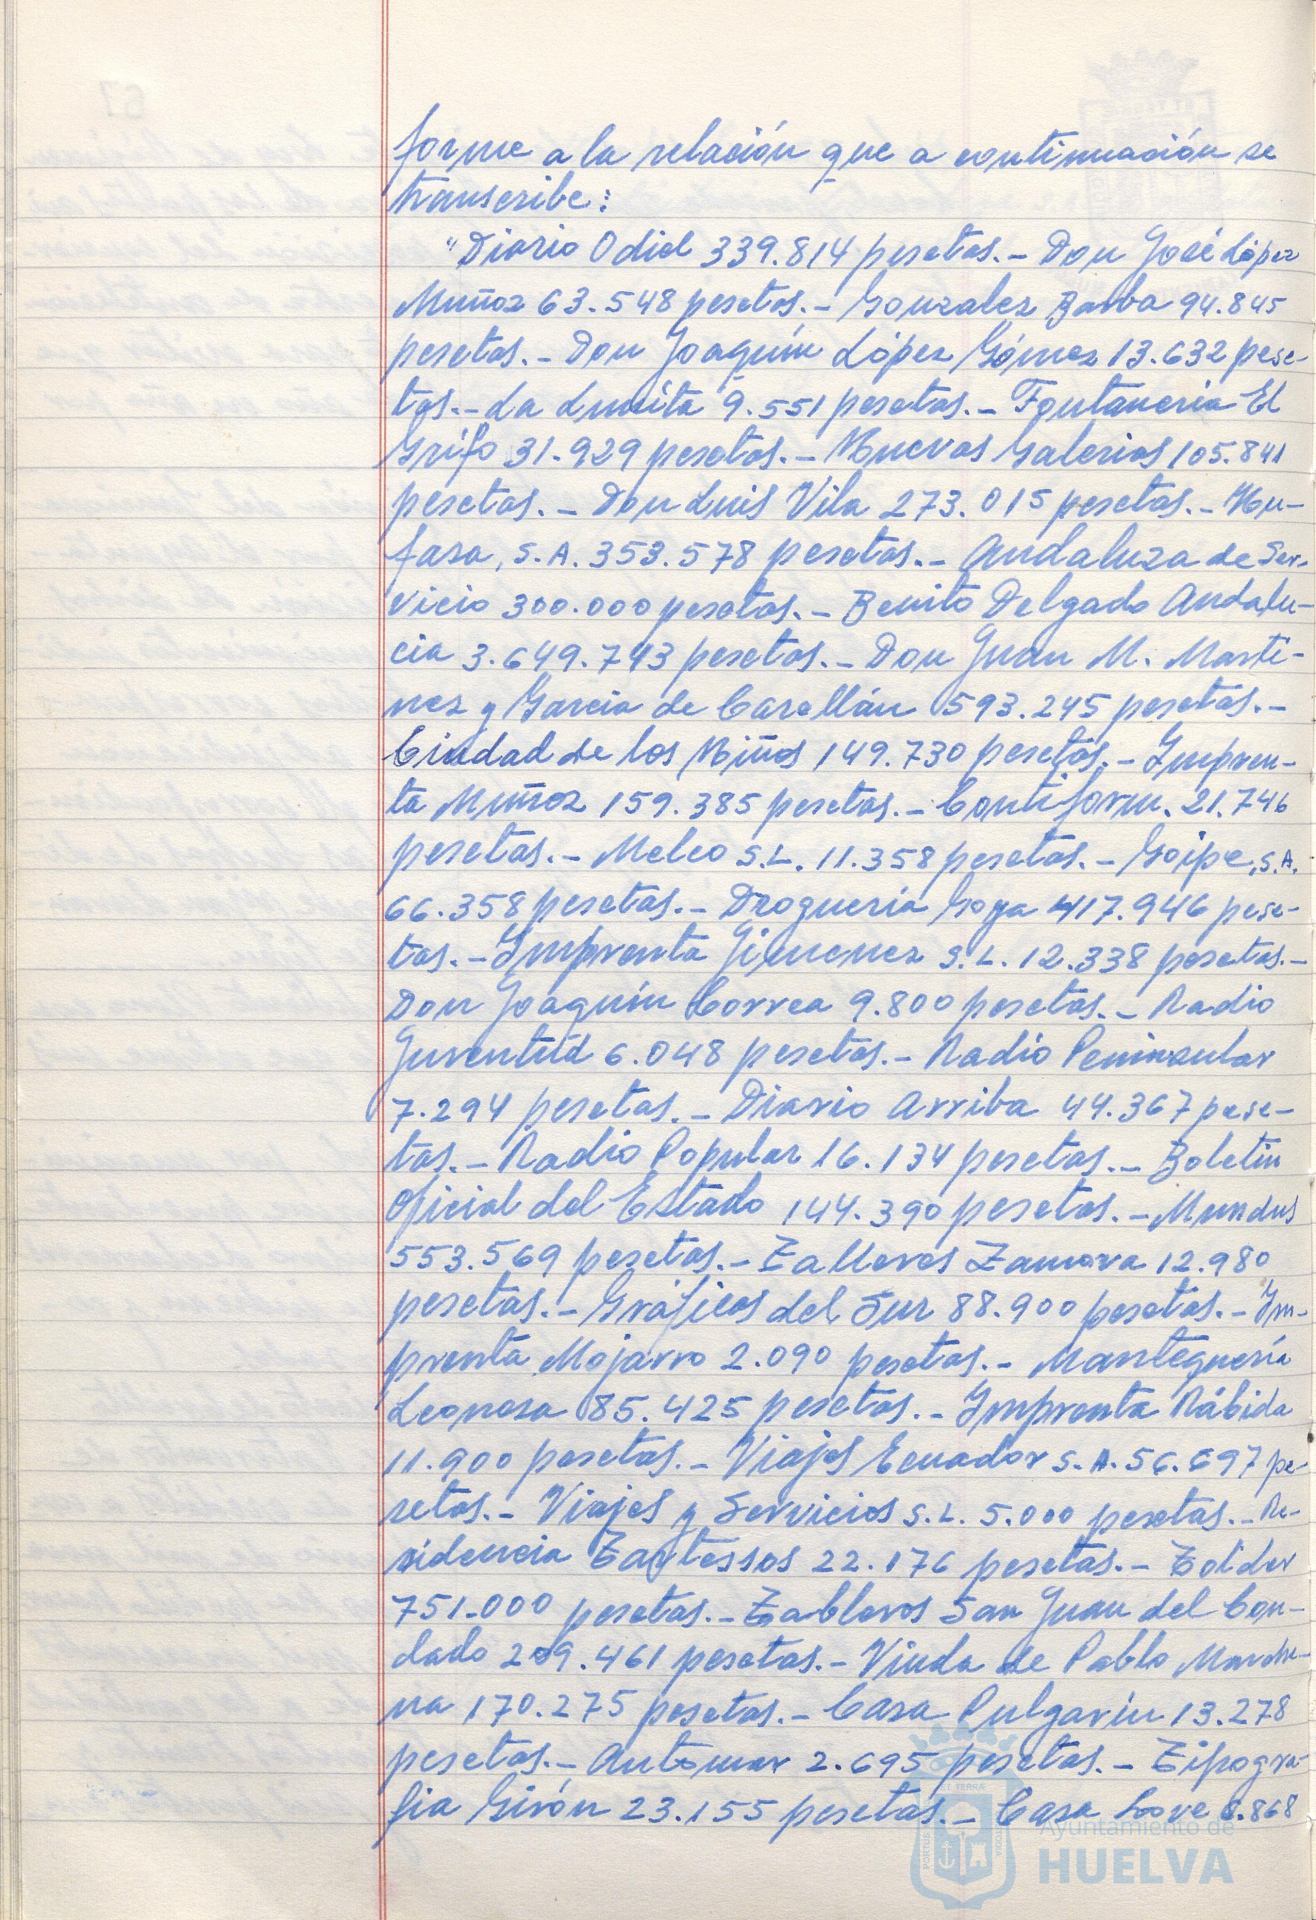 forme a la relación que a continuación se
transcribe:
"Diario Odiel 339.814 pesetas.- Don José López
Muñoz 63.548 pesetas.- Gonzalez Barba 94.845
pesetas.- Don Joaquín López Gómez 13.632 pese-
tas.- La Lucita 9.551 pesetas.- Fontaneria El
Grifo 31.929 pesetas.- Nuevas Galerias 105.841
pesetas.- Don Luis Vila 273.015 pesetas.- Hu-
fasa, S.A. 353.578 pesetas.- Andaluza de Ser-
vicio 300.000 pesetas.- Benito Delgado Andalu-
cia 3.649.743 pesetas.- Don Juan M. Marti-
nez y Garcia de Casellán 593.245 pesetas.-
Ciudad de los Niños 149.730 pesetas.- Impren-
ta Muñoz 159.385 pesetas.- Contiform. 21.746
pesetas.- Melco S.L. 11.358 pesetas.- Goipe, S.A.
66.358 pesetas.- Drogueria Goya 417.946 pese-
tas.- Imprenta Jimenez S.L. 12.338 pesetas.-
Don Joaquín Correa 9.800 pesetas.- Radio
Juventud 6.048 pesetas.- Radio Peninsular
7.294 pesetas.- Diario Arriba 44.367 pese-
tas.- Radio Popular 16.134 pesetas.- Boletin
Oficial del Estado 144.390 pesetas.- Mundus
553.569 pesetas.- Talleres Zamora 12.980
pesetas.- Gráficas del Sur 88.900 pesetas.- Im-
prenta Mojarro 2.090 pesetas.- Mantequería
Leonesa 85.425 pesetas.- Imprenta Rábida
11.900 pesetas.- Viajes Ecuador S.A. 56.697 pe-
setas.- Viajes y Servicios S.L. 5.000 pesetas.- Re-
sidencia Tartessos 22.176 pesetas.- Tolder
751.000 pesetas.- Tableros San Juan del Con-
dado 209.461 pesetas.- Viuda de Pablo Marche-
na 170.275 pesetas.- Casa Pulgarin 13.278
pesetas.- Automar 2.695 pesetas.- Tipogra-
fia Girón 23.155 pesetas.- Casa Love 6.868
Ayuntamiento de
HUELVA